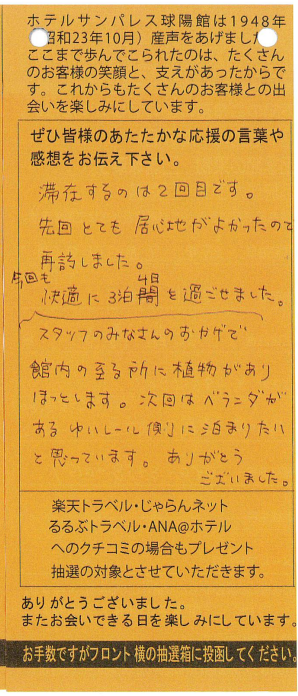 ホテルサンパレス球陽館は1948年
昭和23年10月）産声をあげました
ここまで歩んでこられたのは、たくさん
のお客様の笑顔と、支えがあったからで
す。これからもたくさんのお客様との出
会いを楽しみにしています。
ぜひ皆様のあたたかな応援の言葉や
感想をお伝え下さい。
滞在するのは2回目です。
先回とても居心地がよかったので
再訪しました。
今回も
快適に3泊4日間を過ごせました。
スタッフのみなさんのおかげで
館内の至る所に植物があり
ほっとします。次回はベランダが
あるゆいレール側に泊まりたい
と思っています。ありがとう
ございました。
楽天トラベル・じゃらんネット
るるぶトラベル・ANA@ホテル
へのクチコミの場合もプレゼント
抽選の対象とさせていただきます。
ありがとうございました。
またお会いできる日を楽しみにしています。
お手数ですがフロント横の抽選箱に投函してください。